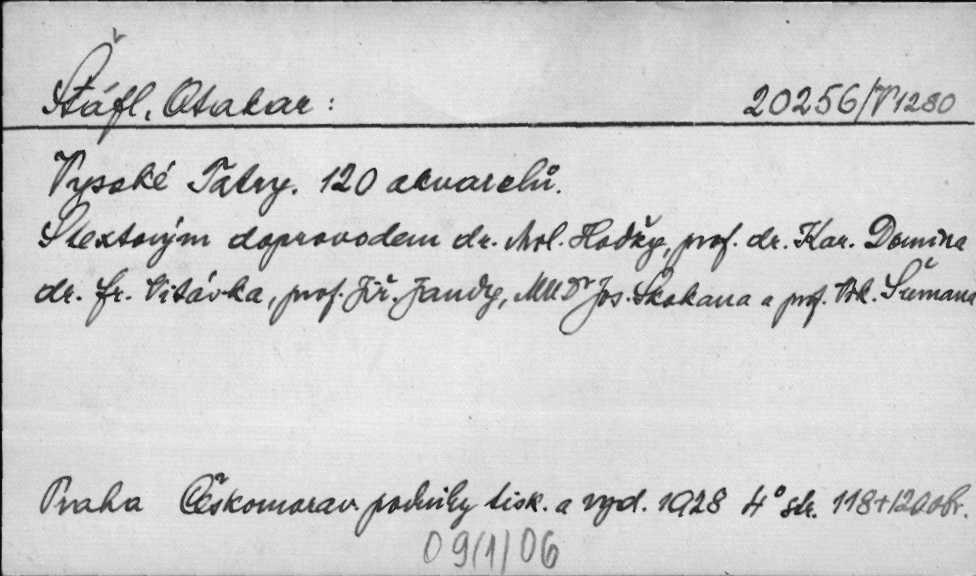 Štáfl, Otakar: 20256/V1280
Vysoké Tatry. 120 akvarelů.
S textovým doprovodem dr. Mil. Hodžy, prof. dr. Kar. Domina
dr. Fr. Vitáska, prof. Jiř. Jandy, MUDr Jos. Skokana a prof. Šumana
Praha Českomorav. podniky tisk. a vyd. 1928 4° str. 118+120 obr.
09/1/06